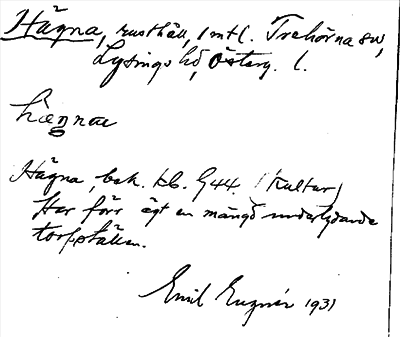 Hägna, rusthåll, 1 mtl. Trehörna sn,
Lysings hd, Österg. l.
hæŋnaɯ
Hägna, bek. kb. G44. (Kultur)
Har förr ägt en mängd underlydande
torpställen.
Emil Euzner 1931